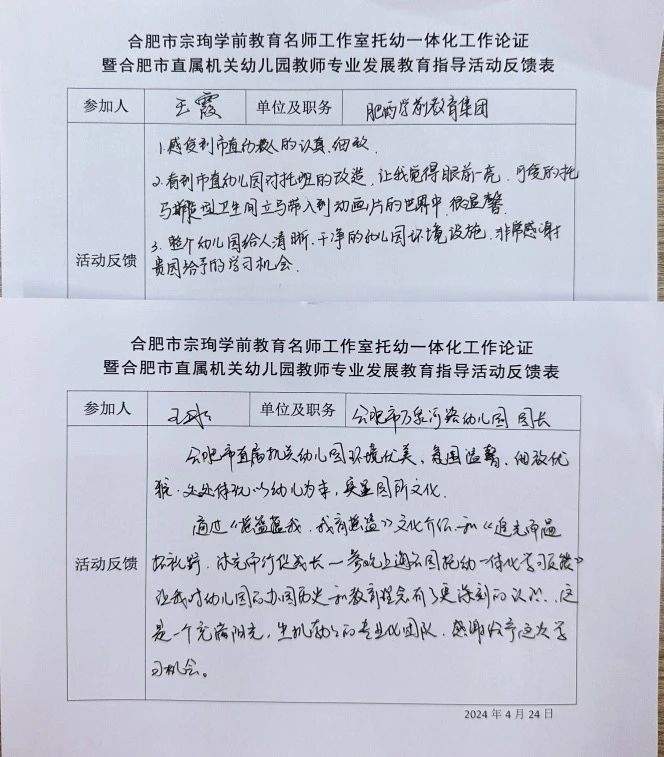 合肥市宗珣学前教育名师工作室托幼一体化工作论证
暨合肥市直属机关幼儿园教师专业发展教育指导活动反馈表
参加人 王霞 单位及职务 肥西学前教育集团
1.感受到市直幼教人的认真、细致.
2.看到市直幼儿园对托班的改造,让我觉得眼前一亮.可爱的托
马斯造型卫生间立马带入到动画片的世界中,很温馨.
3.整个幼儿园给人清晰、干净的幼儿园环境设施.非常感谢
贵园给予的学习机会.
活动反馈
合肥市宗珣学前教育名师工作室托幼一体化工作论证
暨合肥市直属机关幼儿园教师专业发展教育指导活动反馈表
参加人 王 单位及职务 合肥市万泉河路幼儿园 园长
合肥市直属机关幼儿园环境优美,氛围温馨,细致优
雅.处处体现以幼儿为本,突显园所文化.
通过《 我,我育 》文化介绍和《追光而遇
沐光而行促成长—参观上海 园托幼一体化学习反馈》
让我对幼儿园的办园历史和教育理念有了更深刻的认识.这
是一个充满阳光,生机勃勃的专业化团队.感谢给予这次学
习机会。
活动反馈
2024年4月24日